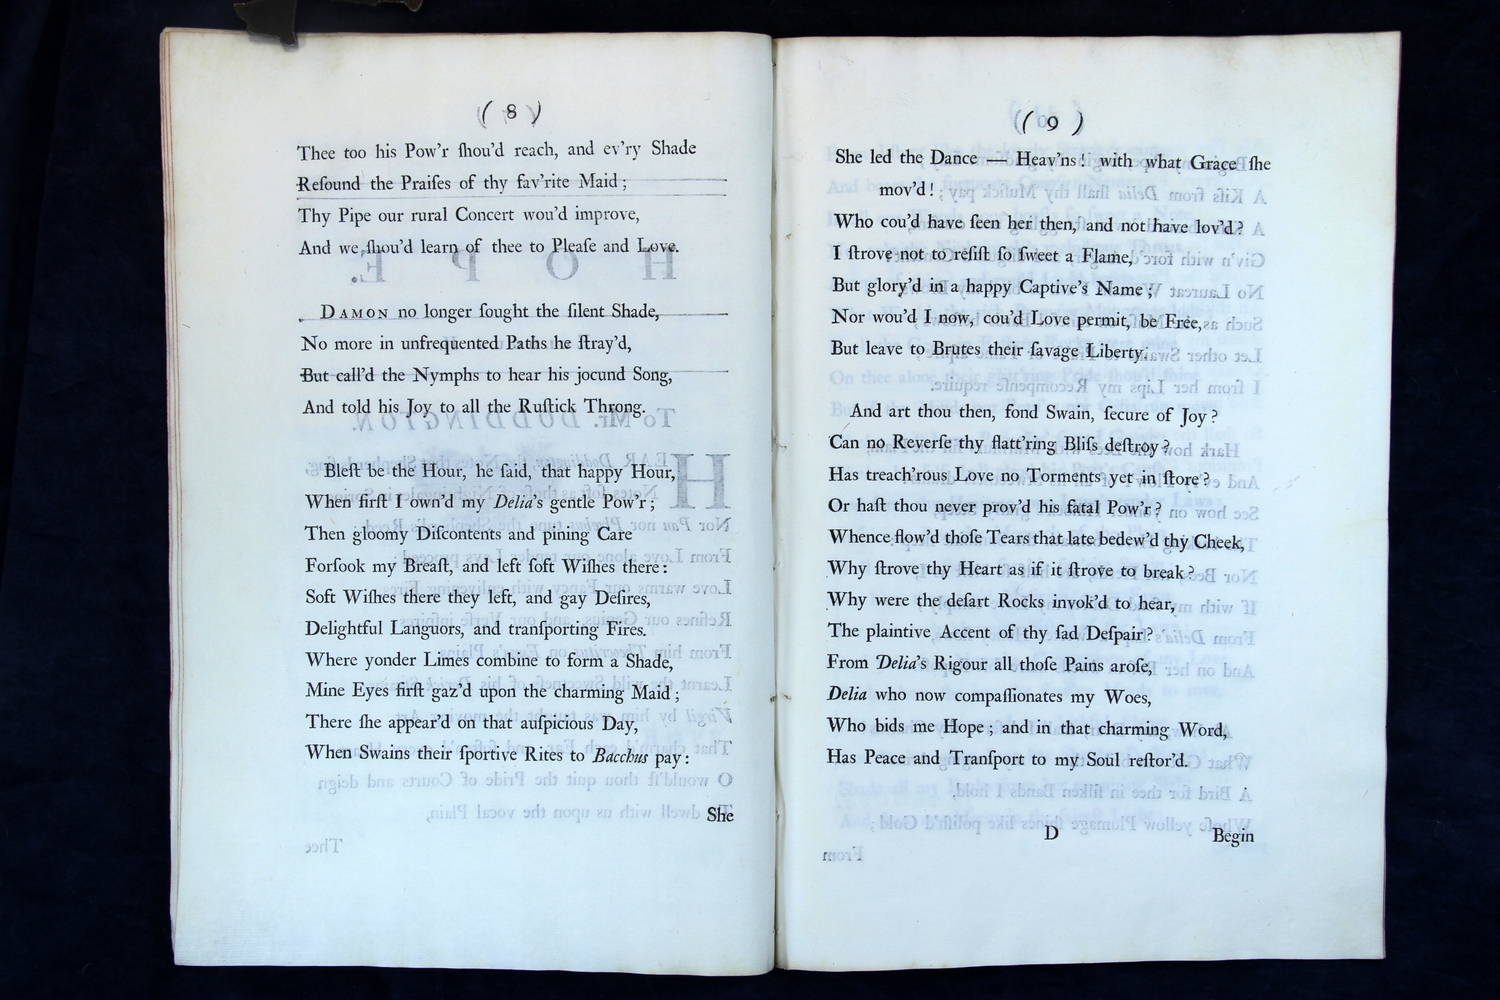 ( 8 )
Thee too his Pow'r ſhou'd reach, and ev'ry Shade
Reſound the Praiſes of thy fav'rite Maid ;
Thy Pipe our rural Concert wou'd improve,
And we ſhou'd learn of thee to Pleaſe and Love.
DAMON no longer ſought the ſilent Shade,
No more in unfrequented Paths he ſtray'd,
But call'd the Nymphs to hear his jocund Song,
And told his Joy to all the Ruſtick Throng.
Bleſt be the Hour, he ſaid, that happy Hour,
When firſt I own'd my Delia's gentle Pow'r ;
Then gloomy Diſcontents and pining Care
Forſook my Breaſt, and left ſoft Wiſhes there :
Soft Wiſhes there they left, and gay Deſires,
Delightful Languors, and tranſporting Fires.
Where yonder Limes combine to form a Shade,
Mine Eyes firſt gaz'd upon the charming Maid ;
There ſhe appear'd on that auſpicious Day,
When Swains their ſportive Rites to Bacchus pay :
She
( 9 )
She led the Dance — Heav'ns ! with what Grace ſhe
mov'd !
Who cou'd have ſeen her then, and not have lov'd ?
I ſtrove not to reſiſt ſo ſweet a Flame,
But glory'd in a happy Captive's Name ;
Nor wou'd I now, cou'd Love permit, be Free,
But leave to Brutes their ſavage Liberty.
And art thou then, fond Swain, ſecure of Joy ?
Can no Reverſe thy flatt'ring Bliſs deſtroy ?
Has treach'rous Love no Torments yet in ſtore ?
Or haſt thou never prov'd his fatal Pow'r ?
Whence flow'd thoſe Tears that late bedew'd thy Cheek,
Why ſtrove thy Heart as if it ſtrove to break ?
Why were the deſart Rocks invok'd to hear,
The plaintive Accent of thy ſad Deſpair ?
From Delia's Rigour all thoſe Pains aroſe,
Delia who now compaſſionates my Woes,
Who bids me Hope ; and in that charming Word,
Has Peace and Tranſport to my Soul reſtor'd.
D
Begin